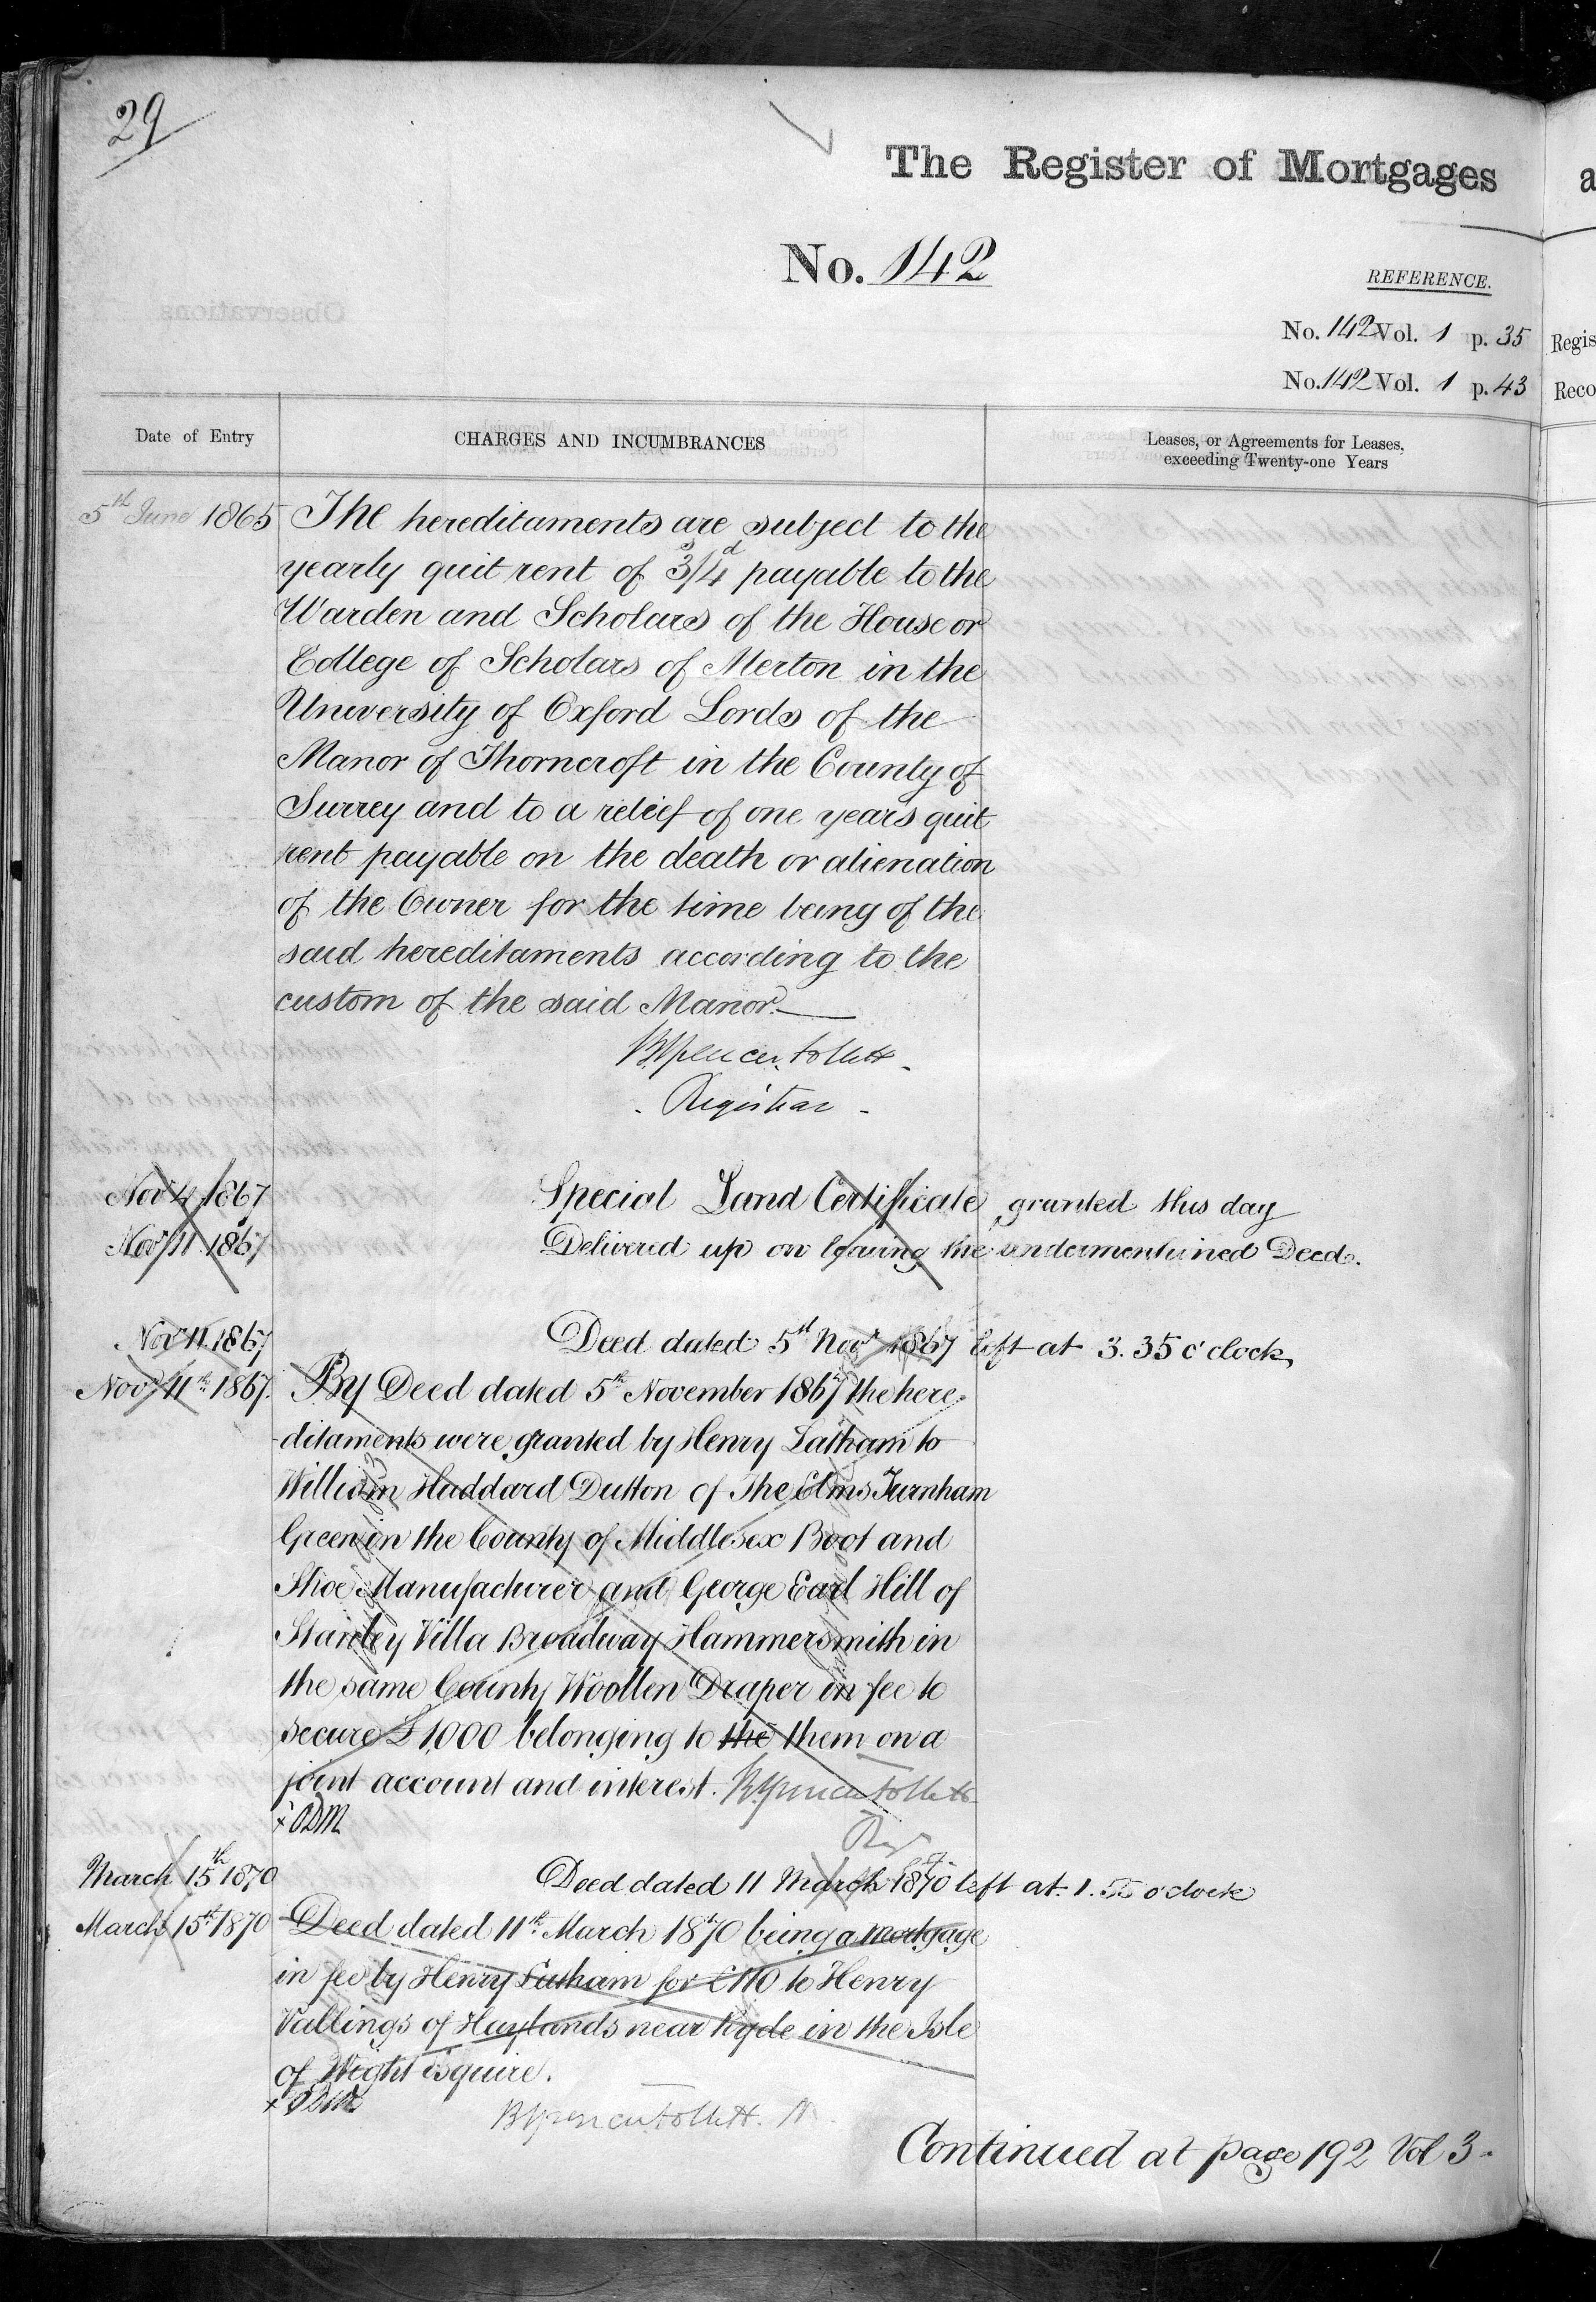 29
The Register of Mortgages
No. 142
REFERENCE.
No. 142 Vol. 1 p. 35
No. 142 Vol. 1 p. 43
Regis
Reco
Date of Entry
CHARGES AND INCUMBRANCES
Leases, or Agreements for Leases,
exceeding Twenty-one Years
5th June 1865 The hereditaments are subject to the
yearly quit rent of 3s/4d payable to the
Warden and Scholars of the House or
College of Scholars of Merton in the
University of Oxford Lords of the
Manor of Thorncroft in the County of
Surrey and to a relief of one years quit
rent payable on the death or alienation
of the Owner for the time being of the
said hereditaments according to the
custom of the said Manor.
B Spencer Follett
Registrar
Nov 4 1867 Special Land Certificate granted this day
Nov 11 1867 Delivered up on leaving the undermentioned Deed.
Nov 11 1867 Deed dated 5th Novr 1867 left at 3.35 o'clock
Nov 11th 1867. By Deed dated 5th November 1867 the here-
-ditaments were granted by Henry Latham to
William Haddard Dutton of The Elms Turnham
Green in the County of Middlesex Boot and
Shoe Manufacturer and George Earl Hill of
Stanley Villa Broadway Hammersmith in
the same County Woollen Draper in fee to
secure £1000 belonging to the them on a
joint account and interest. B Spencer Follett
Regr
x ODM
March 15th 1870 Deed dated 11 March 1870 left at 1.55 o'clock
March 15th 1870 Deed dated 11th March 1870 being a mortgage
in fee by Henry Latham for £110 to Henry
Vallings of Haylands near Ryde in the Isle
of Wight Esquire.
x ODM
B Spencer Follett. R
Continued at page 192 Vol 3.